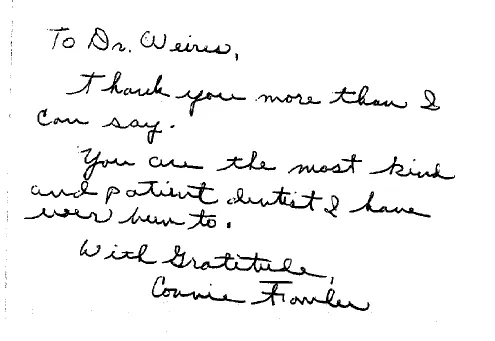 To Dr. Weires,
Thank you more than I
can say.
You are the most kind
and patient dentist I have
ever been to.
With Gratitude,
Connie